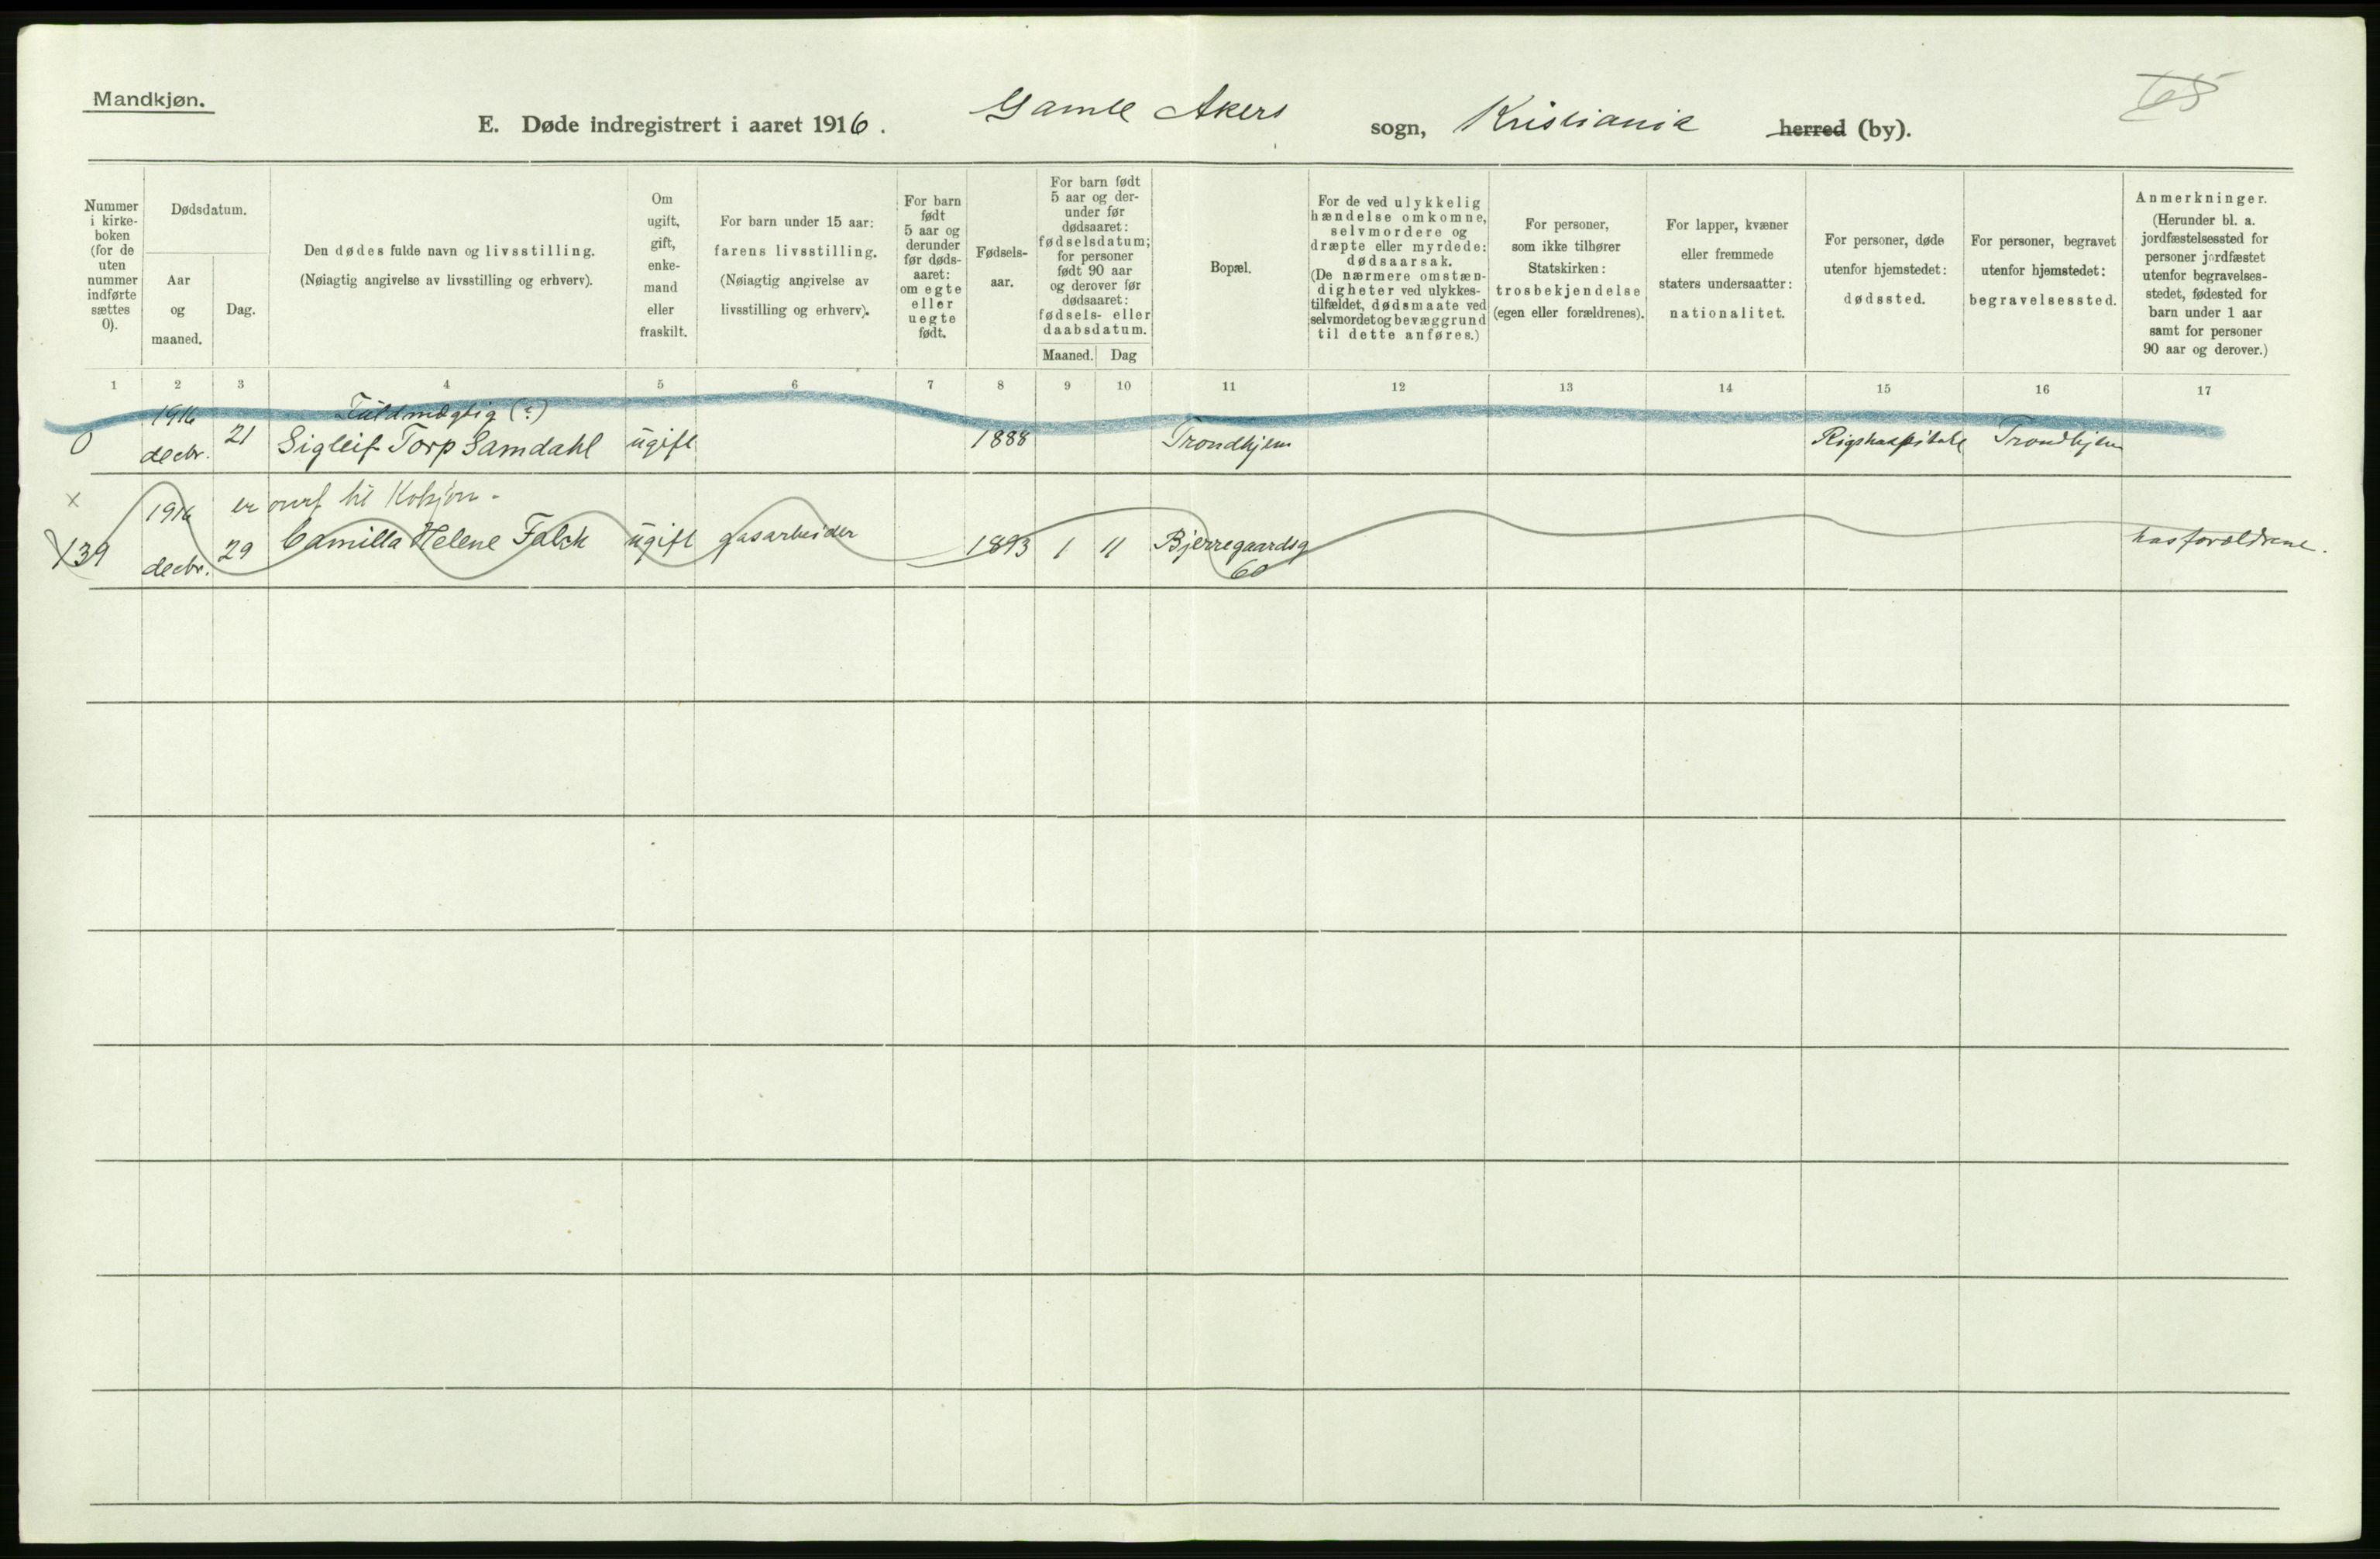 Mandkjøn.
E. Døde indregistrert i aaret 1916. Gamle Akers sogn, Kristiania herred (by).
65
Nummer
i kirke-
boken
(for de
uten
nummer
indførte
sættes
0).
Dødsdatum.
Aar
og
maaned.
Dag.
Den dødes fulde navn og livsstilling.
(Nøiagtig angivelse av livsstilling og erhverv).
Om
ugift,
gift,
enke-
mand
eller
fraskilt.
For barn under 15 aar:
farens livsstilling.
(Nøiagtig angivelse av
livsstilling og erhverv).
For barn
født
5 aar og
derunder
før døds-
aaret:
om egte
eller
uegte
født.
Fødsels-
aar.
For barn født
5 aar og der-
under før
dødsaaret:
fødselsdatum;
for personer
født 90 aar
og derover før
dødsaaret:
fødsels- eller
daabsdatum.
Maaned. Dag
Bopæl.
For de ved ulykkelig
hændelse omkomne,
selvmordere og
dræpte eller myrdede:
dødsaarsak.
(De nærmere omstæn-
digheter ved ulykkes-
tilfældet, dødsmaate ved
selvmordet og bevæggrund
til dette anføres.)
For personer,
som ikke tilhører
Statskirken:
trosbekjendelse
(egen eller forældrenes).
For lapper, kvæner
eller fremmede
staters undersaatter:
nationalitet.
For personer, døde
utenfor hjemstedet:
dødssted.
For personer, begravet
utenfor hjemstedet:
begravelsessted.
Anmerkninger.
(Herunder bl. a.
jordfæstelsessted for
personer jordfæstet
utenfor begravelses-
stedet, fødested for
barn under 1 aar
samt for personer
90 aar og derover.)
1 2 3 4 5 6 7 8 9 10 11 12 13 14 15 16 17
1916 Fuldmægtig (?)
0 decbr. 21 Sigleif Torp Samdahl ugift 1888 Trondhjem Rigshospitalet Trondhjem
x 1916 er overf til Kvkjøn.
139 decbr. 29 Camilla Helene Falck ugift gasarbeider 1893 1 11 Bjerregaardsg hos forældrene.
60